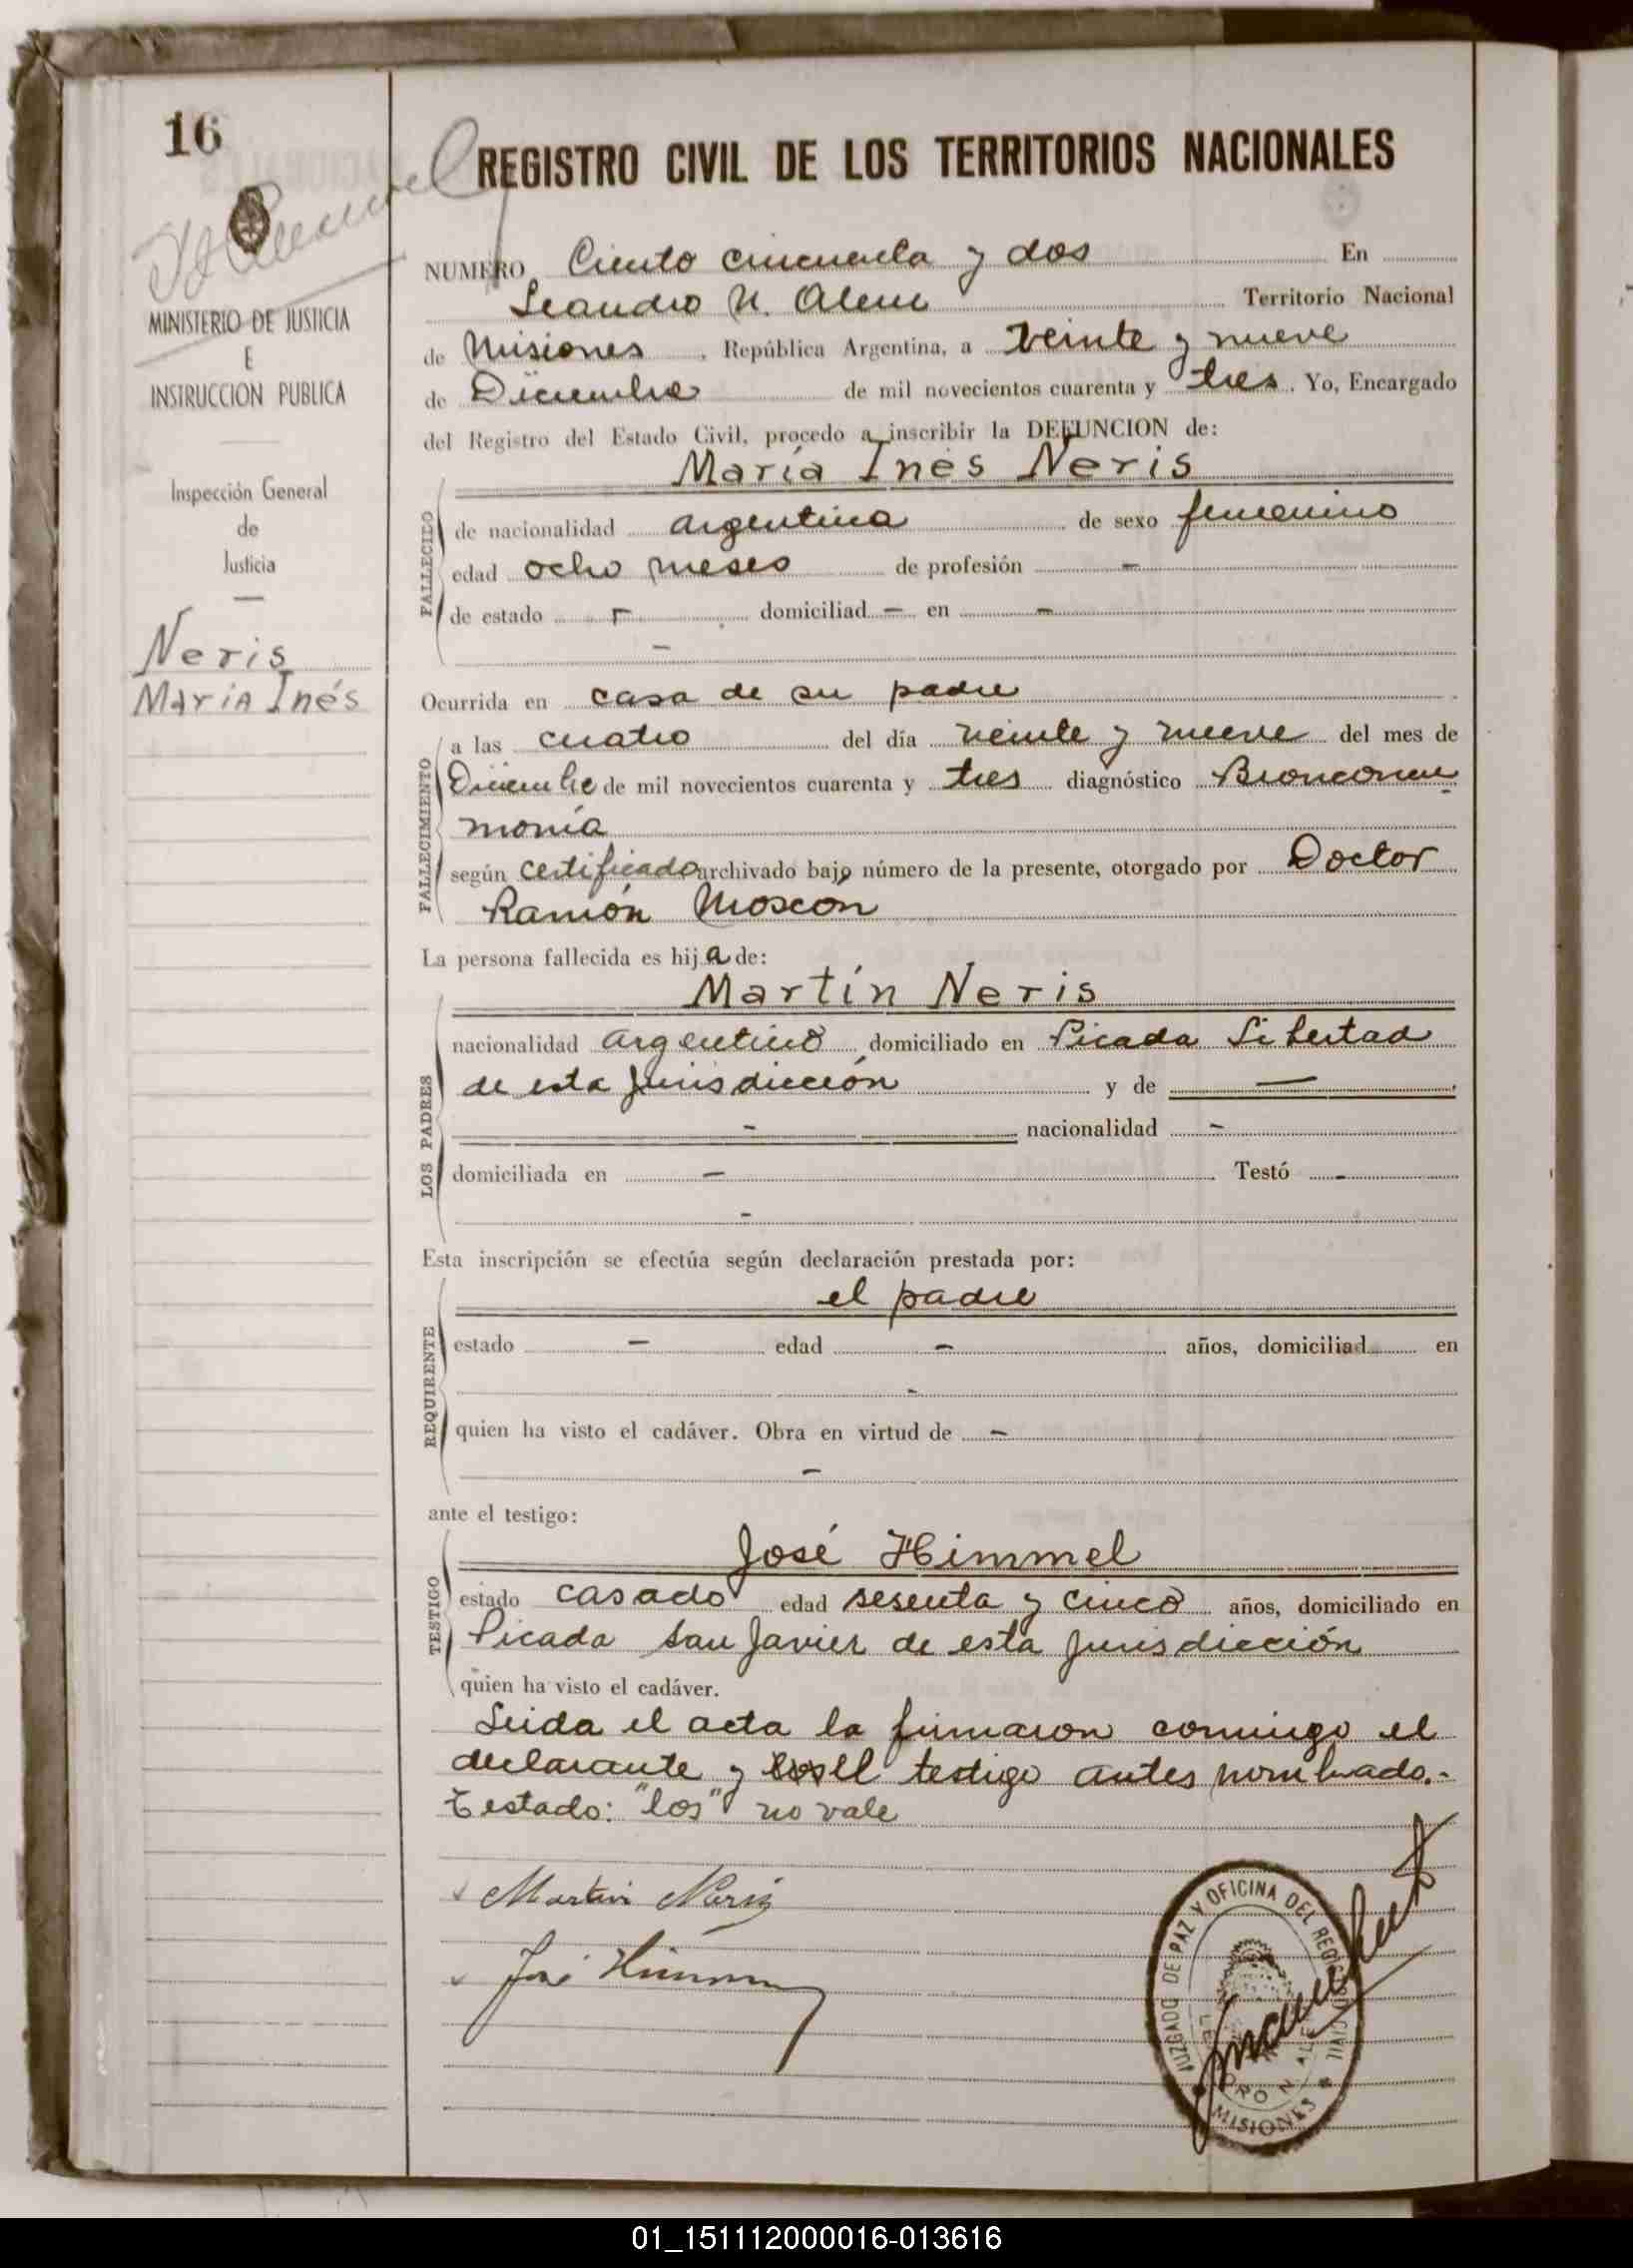 16
REGISTRO CIVIL DE LOS TERRITORIOS NACIONALES
MINISTERIO DE JUSTICIA
E
INSTRUCCION PUBLICA
Inspección General
de
Justicia
Neris
Maria Inés
NUMERO Ciento cincuenta y dos En
Leandro N. Alem Territorio Nacional
de Misiones, República Argentina, a veinte y nueve
de Diciembre de mil novecientos cuarenta y tres. Yo, Encargado
del Registro del Estado Civil, procedo a inscribir la DEFUNCION de:
María Inés Neris
FALLECIDO
de nacionalidad argentina de sexo femenino
edad ocho meses de profesión -
de estado - domiciliad - en -
-
Ocurrida en casa de su padre
FALLECIMIENTO
a las cuatro del día veinte y nueve del mes de
Diciembre de mil novecientos cuarenta y tres diagnóstico Bronconeu-
monía
según certificado archivado bajo número de la presente, otorgado por Doctor
Ramón Moscón
La persona fallecida es hija de:
Martín Neris
LOS PADRES
nacionalidad argentino domiciliado en Picada Libertad
de esta jurisdicción y de —
- nacionalidad -
domiciliada en - Testó -
-
Esta inscripción se efectúa según declaración prestada por:
el padre
REQUIRENTE
estado - edad - años, domiciliad en
-
quien ha visto el cadáver. Obra en virtud de -
-
ante el testigo:
José Himmel
TESTIGO
estado casado edad sesenta y cinco años, domiciliado en
Picada San Javier de esta jurisdicción
quien ha visto el cadáver.
Leida el acta la firmaron conmigo el
declarante y los el testigo antes nombrado.-
Testado: "los" no vale
Martin Neris
José Himmel
JUZGADO DE PAZ Y OFICINA DEL REGISTRO CIVIL
LEANDRO N. ALEM
MISIONES
01_151112000016-013616